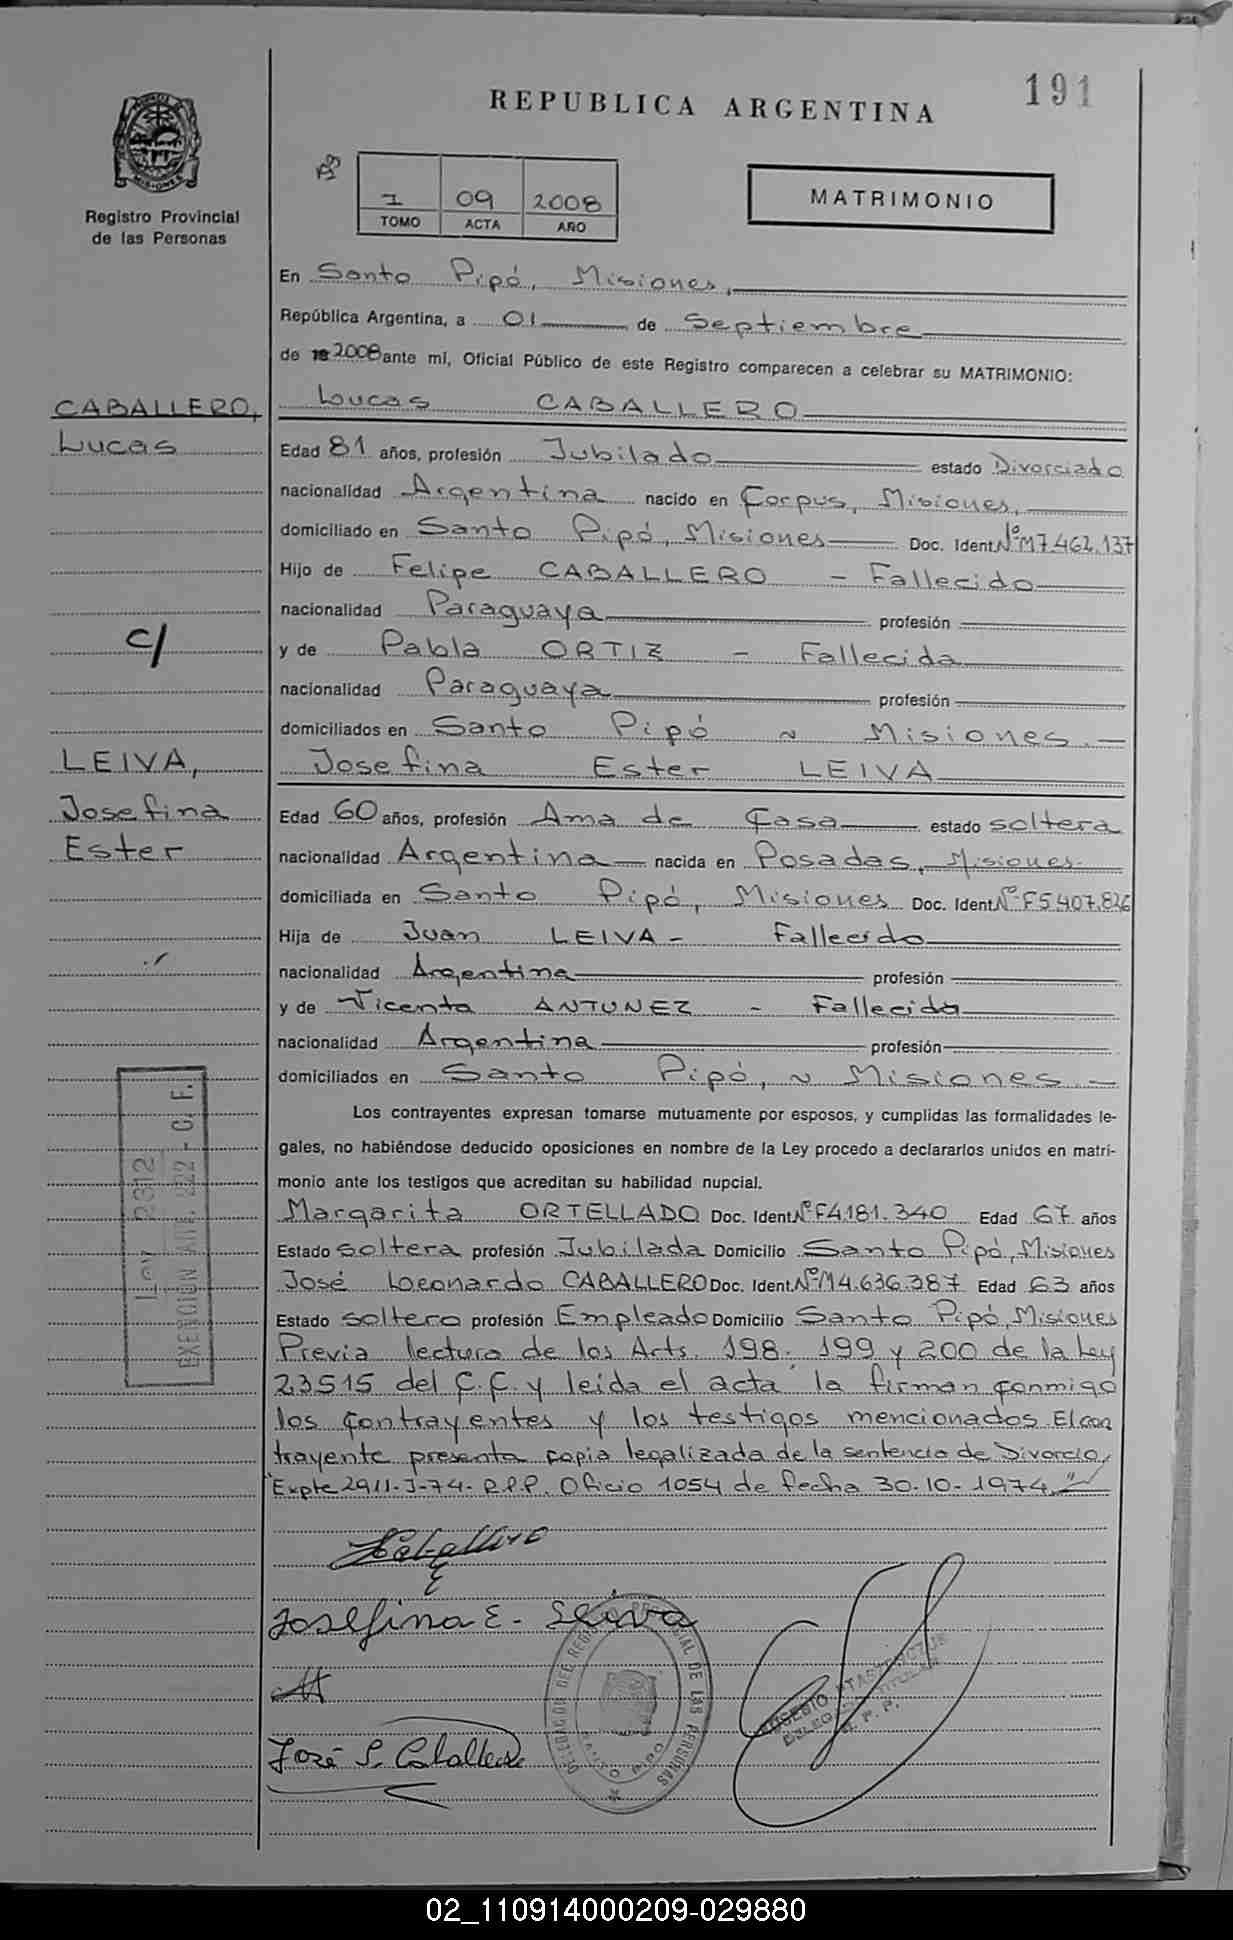 191
REPUBLICA ARGENTINA
MISIONES
Registro Provincial
de las Personas
1 09 2008
TOMO ACTA AÑO
MATRIMONIO
En Santo Pipó, Misiones,
República Argentina, a 01 de Septiembre
de 2008 ante mí, Oficial Público de este Registro comparecen a celebrar su MATRIMONIO:
CABALLERO,
Lucas
c/
LEIVA,
Josefina
Ester
Lucas CABALLERO
Edad 81 años, profesión Jubilado estado Divorciado
nacionalidad Argentina nacido en Corpus, Misiones,
domiciliado en Santo Pipó, Misiones Doc. Ident. Nº M7.462.137
Hijo de Felipe CABALLERO - Fallecido
nacionalidad Paraguaya profesión
y de Pabla ORTIZ - Fallecida
nacionalidad Paraguaya profesión
domiciliados en Santo Pipó ~ Misiones.-
Josefina Ester LEIVA
Edad 60 años, profesión Ama de Casa estado soltera
nacionalidad Argentina nacida en Posadas, Misiones.
domiciliada en Santo Pipó, Misiones Doc. Ident. Nº F5.407.826
Hija de Juan LEIVA - Fallecido
nacionalidad Argentina profesión
y de Vicenta ANTUNEZ - Fallecida
nacionalidad Argentina profesión
domiciliados en Santo Pipó, ~ Misiones.-
Los contrayentes expresan tomarse mutuamente por esposos, y cumplidas las formalidades le-
gales, no habiéndose deducido oposiciones en nombre de la Ley procedo a declararlos unidos en matri-
monio ante los testigos que acreditan su habilidad nupcial.
Margarita ORTELLADO Doc. Ident. Nº F4.181.340 Edad 67 años
Estado soltera profesión Jubilada Domicilio Santo Pipó, Misiones
José Leonardo CABALLERO Doc. Ident. Nº M4.636.387 Edad 63 años
Estado soltero profesión Empleado Domicilio Santo Pipó, Misiones
Previa lectura de los Arts. 198. 199 y 200 de la Ley
23515 del C.C. y leida el acta la firman conmigo
los contrayentes y los testigos mencionados. El con
trayente presenta copia legalizada de la sentencia de Divorcio,
"Expte 2911-J-74- R.P.P. Oficio 1054 de fecha 30-10-1974."
Ley 2312
EXENCION ART. 222 - C. F.
Caballero
Josefina E. Leiva
José L. Caballero
DELEGACION DEL REGISTRO PROVINCIAL DE LAS PERSONAS
SANTO PIPO
EUSEBIO
DELEGADO TITULAR
R. P. P.
02_110914000209-029880